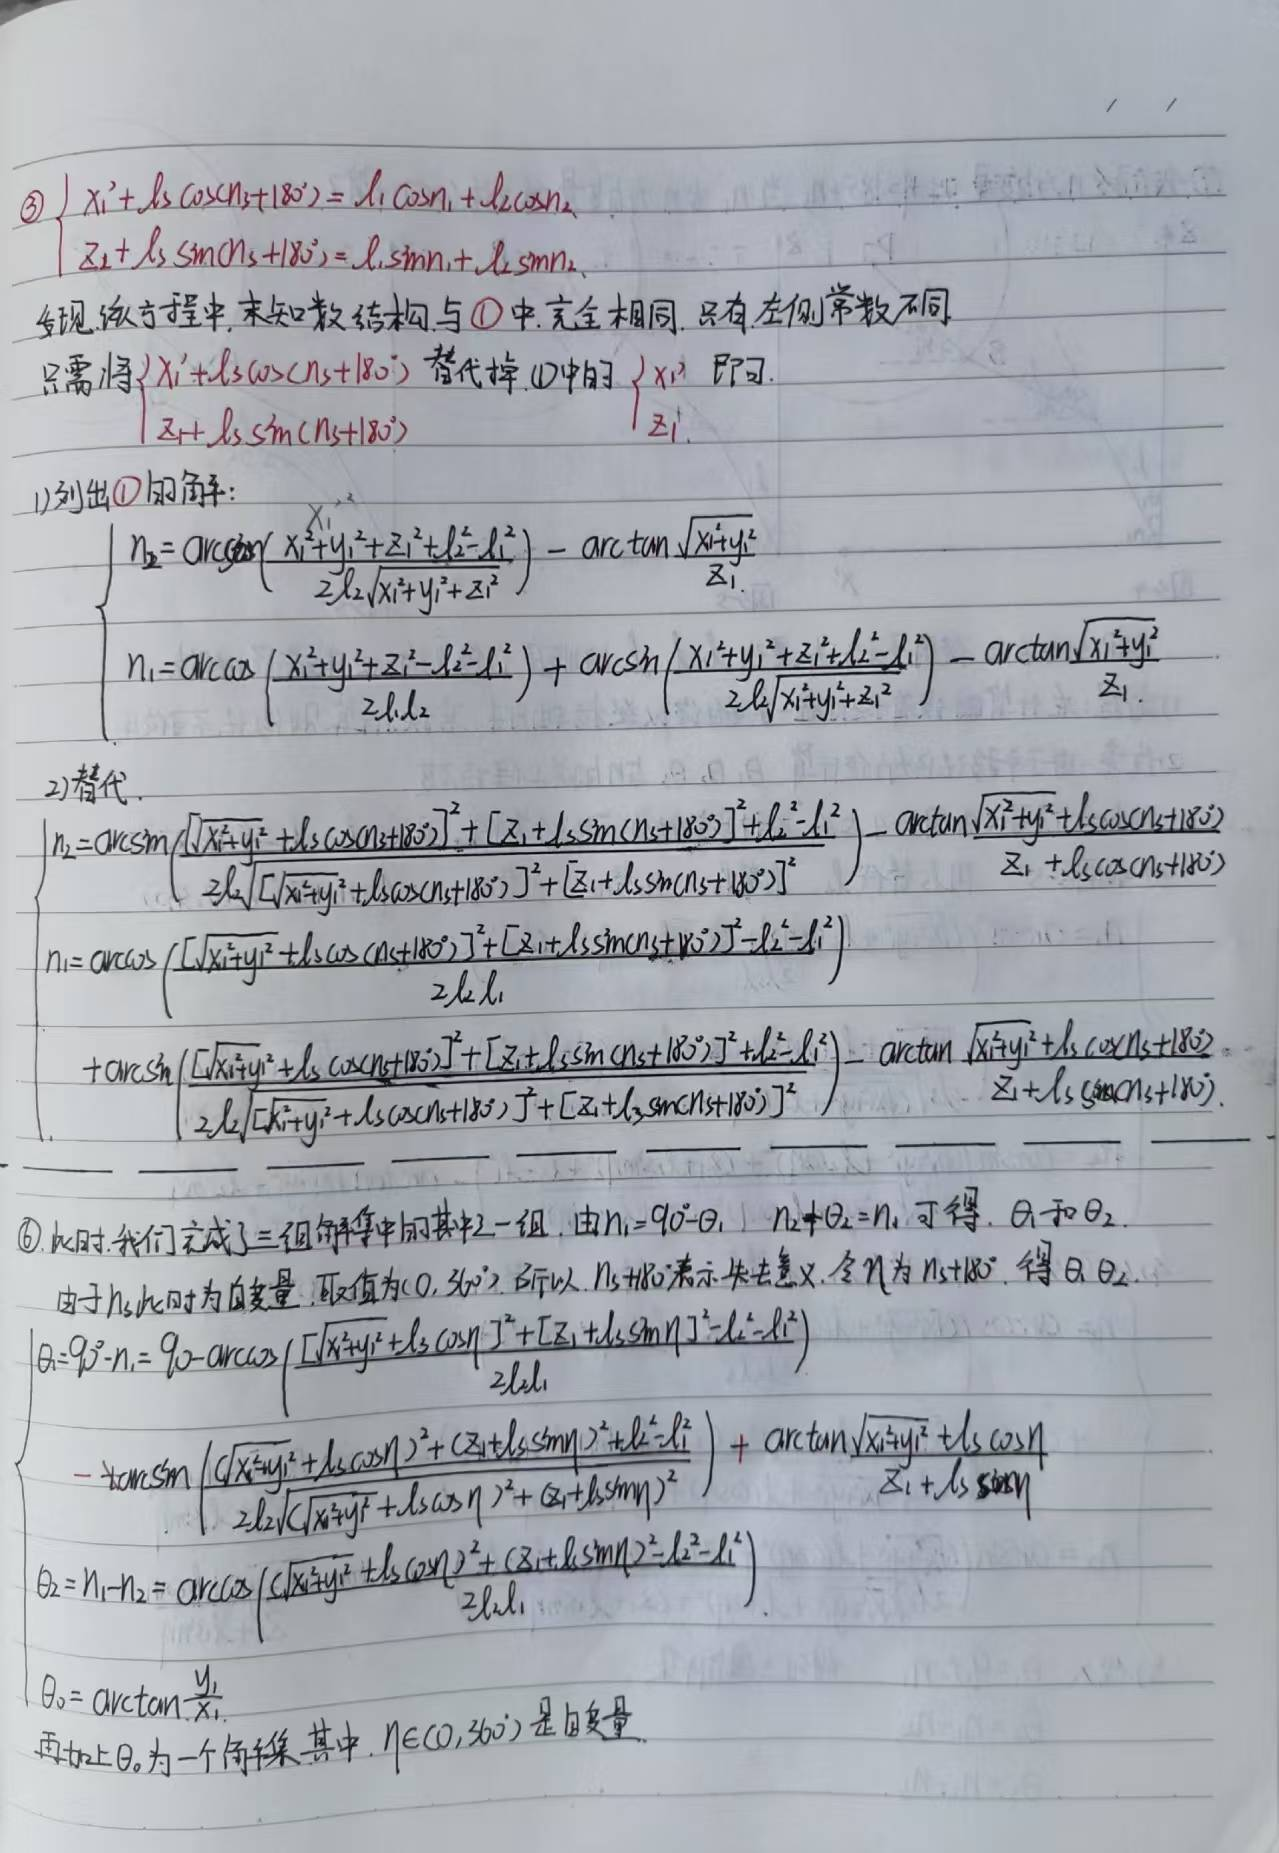 ③ { x₁' + l₃ cos(n₃+180°) = l₁ cosn₁ + l₂cosn₂
z₁ + l₃ sin(n₃+180°) = l₁sinn₁ + l₂sinn₂
发现.该方程中.未知数结构与①中.完全相同.只有左侧常数不同
只需将{ x₁'+l₃cos(n₃+180°) 替代掉.①中的 { x₁' 即可.
z₁+l₃sin(n₃+180°) z₁'.
1)列出①的解:
x₁'²
n₂=arcsin((x₁²+y₁²+z₁²+l₂²-l₁²)/(2l₂√(x₁²+y₁²+z₁²))) - arctan √(x₁²+y₁²)/z₁.
n₁=arccos((x₁²+y₁²+z₁²-l₂²-l₁²)/(2l₁l₂)) + arcsin((x₁²+y₁²+z₁²+l₂²-l₁²)/(2l₂√(x₁²+y₁²+z₁²))) - arctan √(x₁²+y₁²)/z₁.
2)替代.
n₂=arcsin(([√(x₁²+y₁²)+l₃cos(n₃+180°)]²+[z₁+l₃sin(n₃+180°)]²+l₂²-l₁²)/(2l₂√([√(x₁²+y₁²)+l₃cos(n₃+180°)]²+[z₁+l₃sin(n₃+180°)]²))) - arctan (√(x₁²+y₁²)+l₃cos(n₃+180°))/(z₁+l₃cos(n₃+180°))
n₁=arccos(([√(x₁²+y₁²)+l₃cos(n₃+180°)]²+[z₁+l₃sin(n₃+180°)]²-l₂²-l₁²)/(2l₂l₁))
+arcsin(([√(x₁²+y₁²)+l₃cos(n₃+180°)]²+[z₁+l₃sin(n₃+180°)]²+l₂²-l₁²)/(2l₂√([√(x₁²+y₁²)+l₃cos(n₃+180°)]²+[z₁+l₃sin(n₃+180°)]²))) - arctan (√(x₁²+y₁²)+l₃cos(n₃+180°))/(z₁+l₃sin(n₃+180°)).
⑥.此时.我们完成了三组解集中的其中之一组.由n₁=90°-θ₁ n₂+θ₂=n₁.可得.θ₁和θ₂.
由于n₃此时为自变量.取值为(0,360°).所以.n₃+180°表示失去意义.令η为n₃+180°.得θ₁θ₂.
θ₁=90°-n₁=90-arccos(([√(x₁²+y₁²)+l₃cosη]²+[z₁+l₃sinη]²-l₂²-l₁²)/(2l₂l₁))
-arcsin(((√(x₁²+y₁²)+l₃cosη)²+(z₁+l₃sinη)²+l₂²-l₁²)/(2l₂√((√(x₁²+y₁²)+l₃cosη)²+(z₁+l₃sinη)²))) + arctan (√(x₁²+y₁²)+l₃cosη)/(z₁+l₃sinη)
θ₂=n₁-n₂=arccos(((√(x₁²+y₁²)+l₃cosη)²+(z₁+l₃sinη)²-l₂²-l₁²)/(2l₂l₁)).
θ₀=arctan y₁/x₁.
再加上θ₀为一个解集.其中.η∈(0,360°)是自变量.